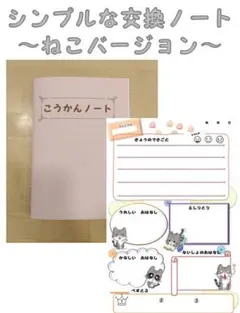 シンプルな交換ノート
〜ねこバージョン〜
こうかんノート
きょうのできごと
うれしい おはなし
えしりとり
かなしい おはなし
ないしょのおはなし